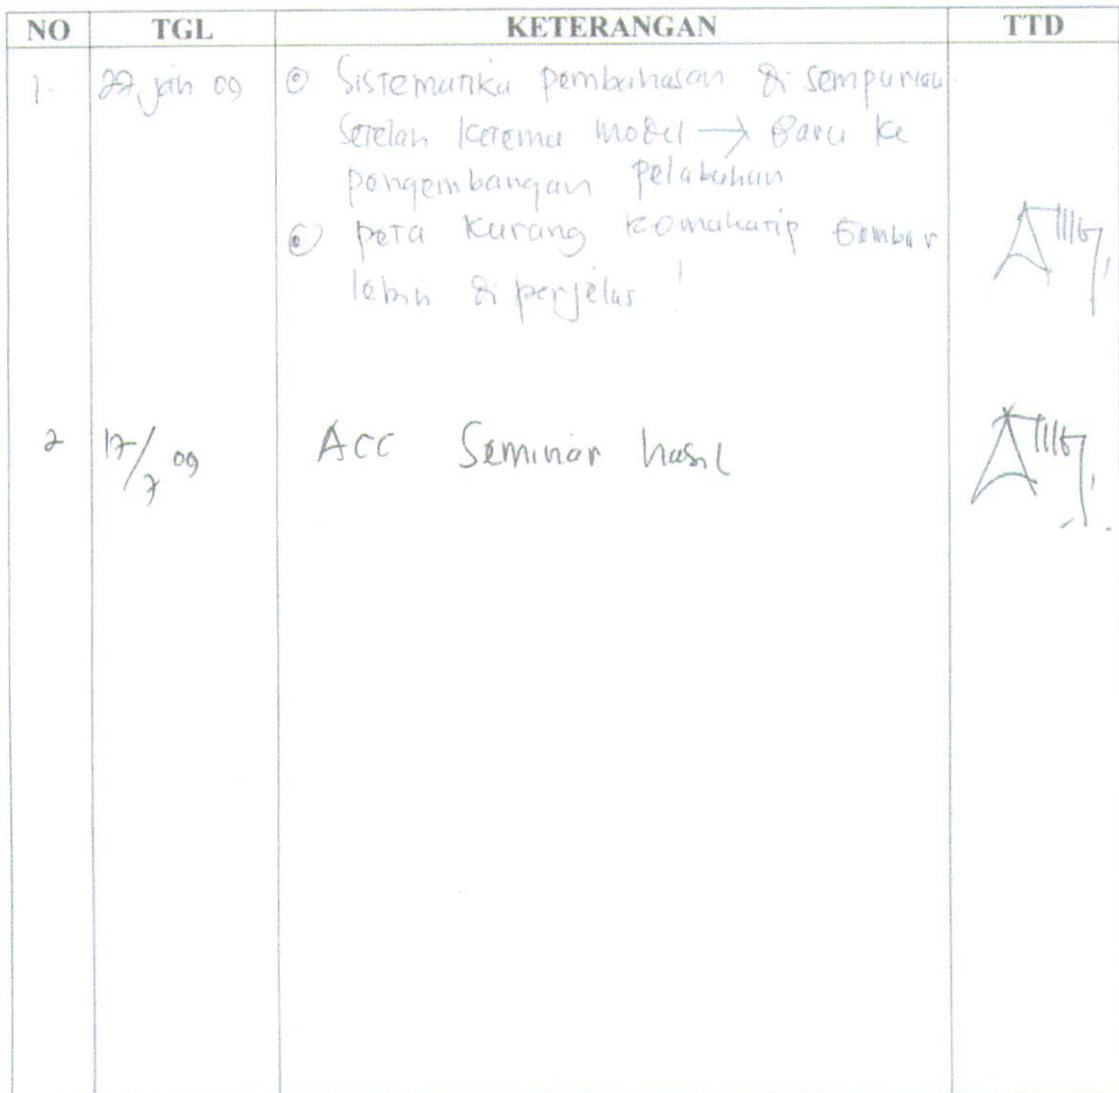 NO TGL KETERANGAN TTD
1. 27 jan 09 Sistematika pembahasan di sempurnakan
Setelah Ketemu Model → Baru ke
pengembangan pelabuhan
peta Kurang Komunikatip Gambar
lebih di perjelas !
2 17/7 09 ACC Seminar hasil